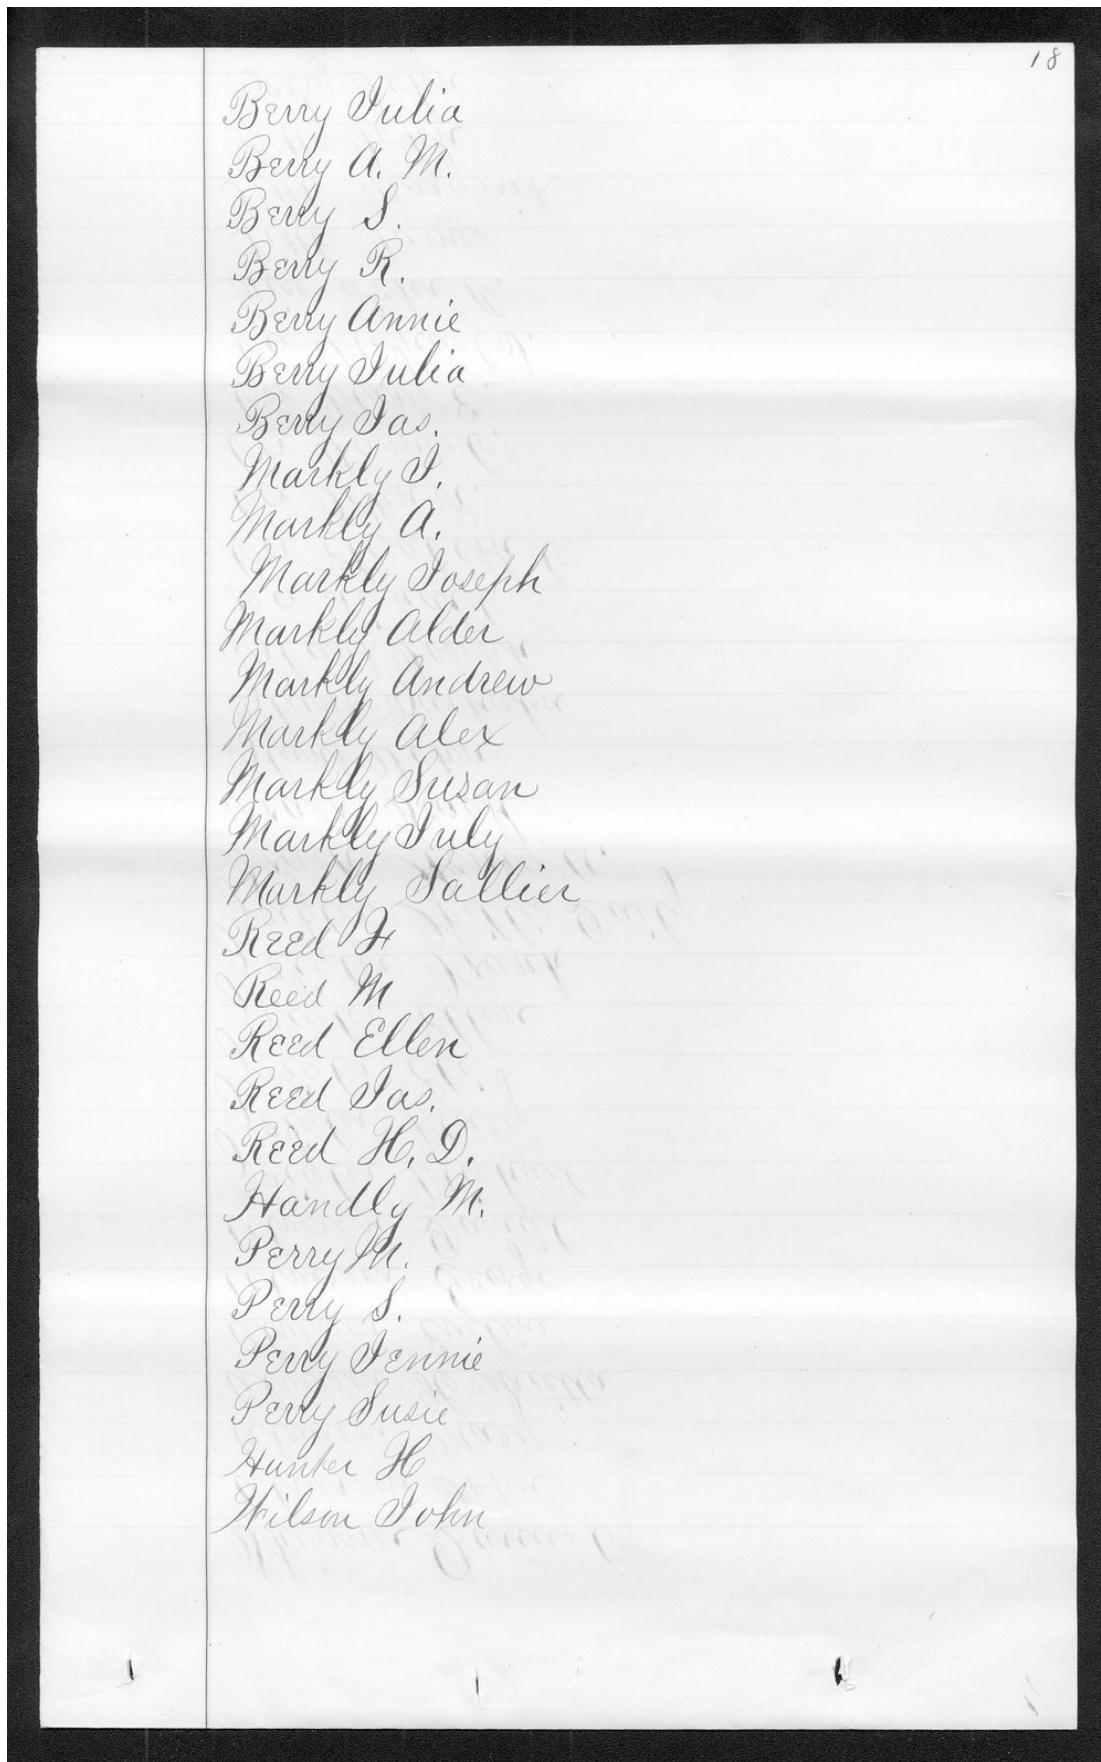 18
Berry Julia
Berry A. M.
Berry S.
Berry R.
Berry Annie
Berry Julia
Berry Jas.
Markly J.
Markly A.
Markly Joseph
Markly Alder
Markly Andrew
Markly Alex
Markly Susan
Markly July
Markly Sallier
Reed F
Reed M
Reed Ellen
Reed Jas.
Reed H. D.
Handly M.
Perry M.
Perry S.
Perry Jennie
Perry Susie
Hunter H
Wilson John